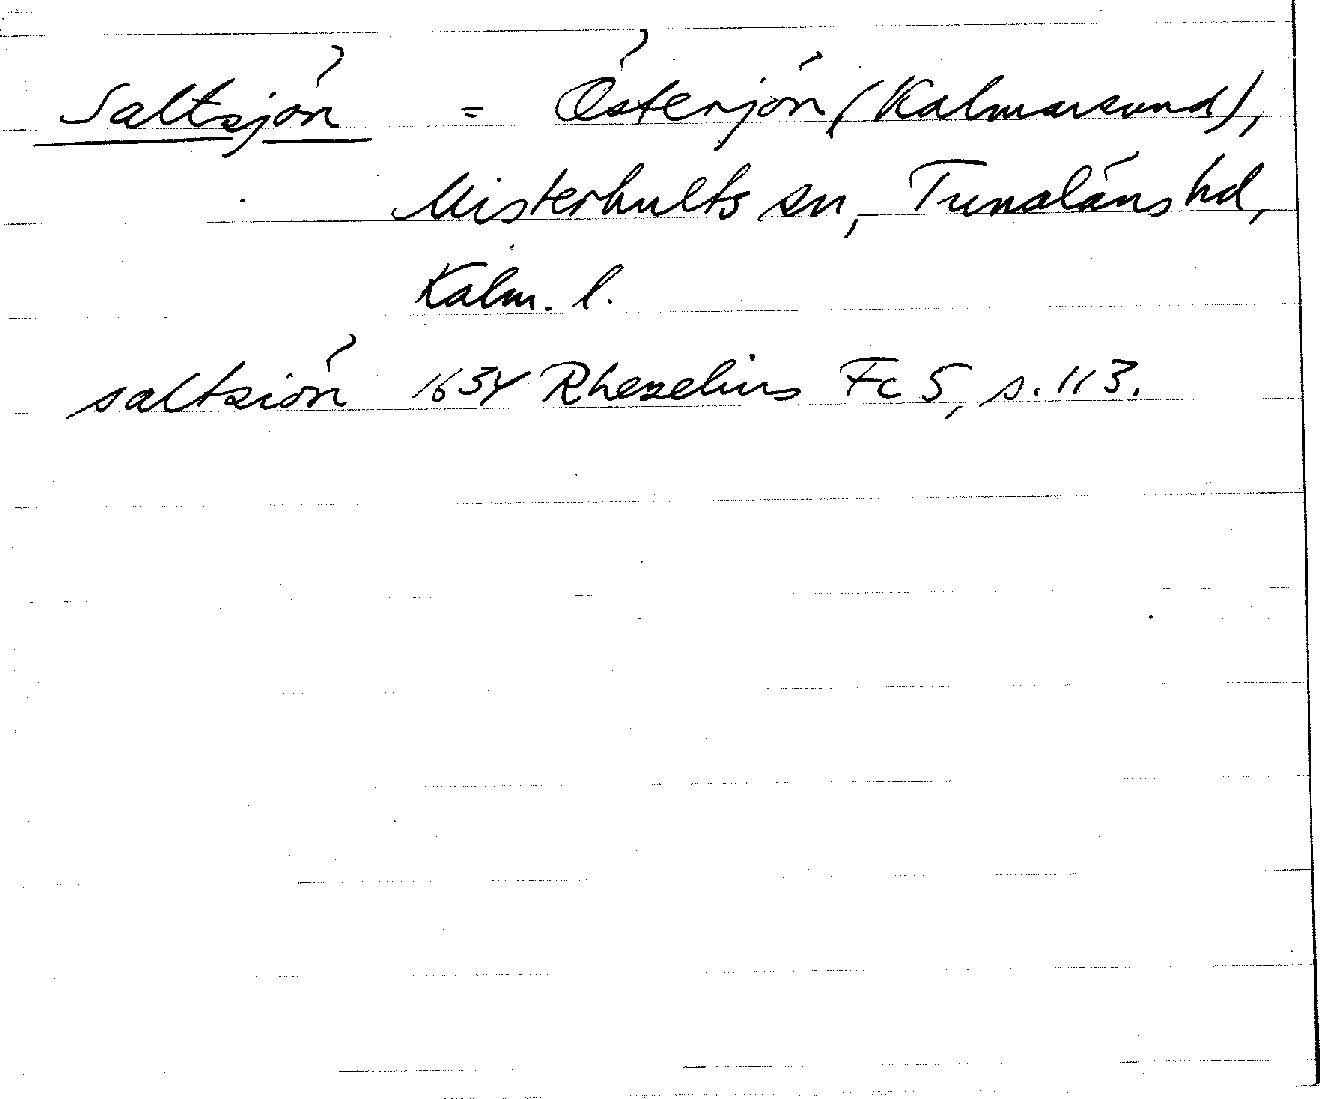 Saltsjön = Östersjön (Kalmarsund),
Misterhults sn, Tunaläns hd,
Kalm. l.
saltsiön 1634 Rhezelius Fc 5, s. 113.